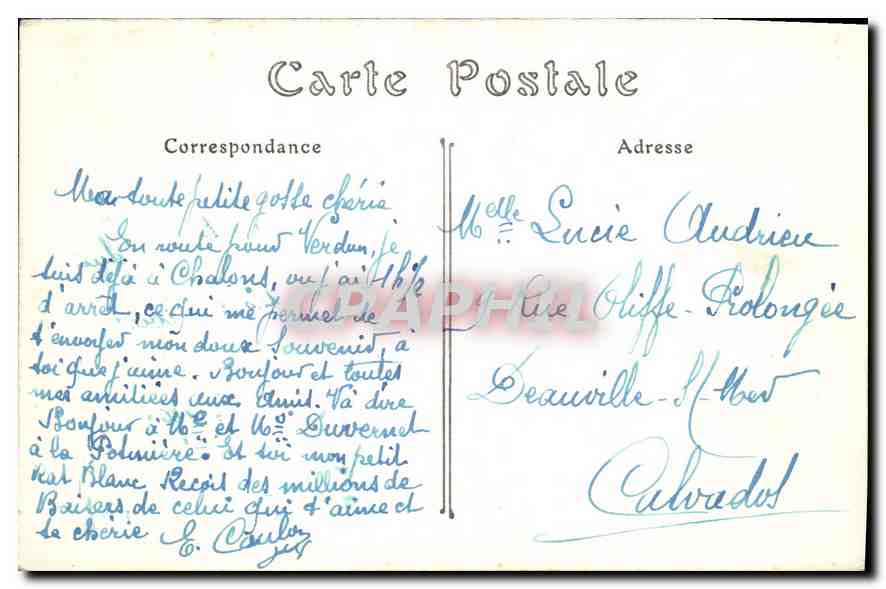 Carte Postale
Correspondance
Adresse
Ma toute petite gosse chérie
En route pour Verdun, je
suis déjà à Chalons, ou j'ai 1h 1/2
d'arrêt, ce qui me permet de
t'envoyer mon doux souvenir, à
toi que j'aime. Bonjour et toutes
mes amitiées aux Amis. Va dire
Bonjour à Me et Mr Duvernet
à la Potinière. Et toi mon petit
Rat Blanc Reçois des millions de
Baisers de celui qui t'aime et
te chérie E.
Melle Lucie Andrieu
Rue Oliffe-Prolongée
Deauville-S/Mer
Calvados
CRAPHIL